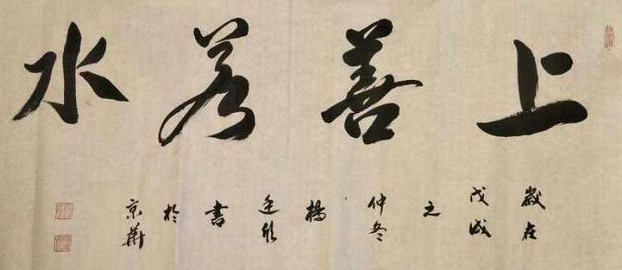 上善若水
歲在戊戌之仲冬楊書於京華